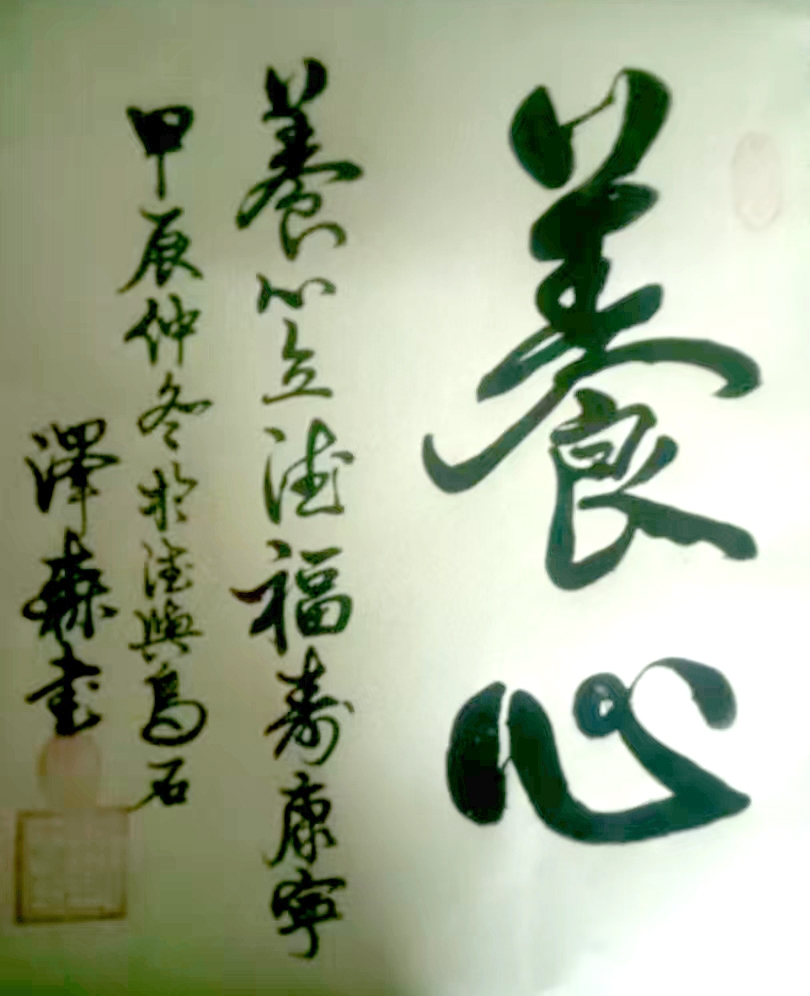 養心
養心立德福寿康寧
甲辰仲冬於德興烏石
澤森書